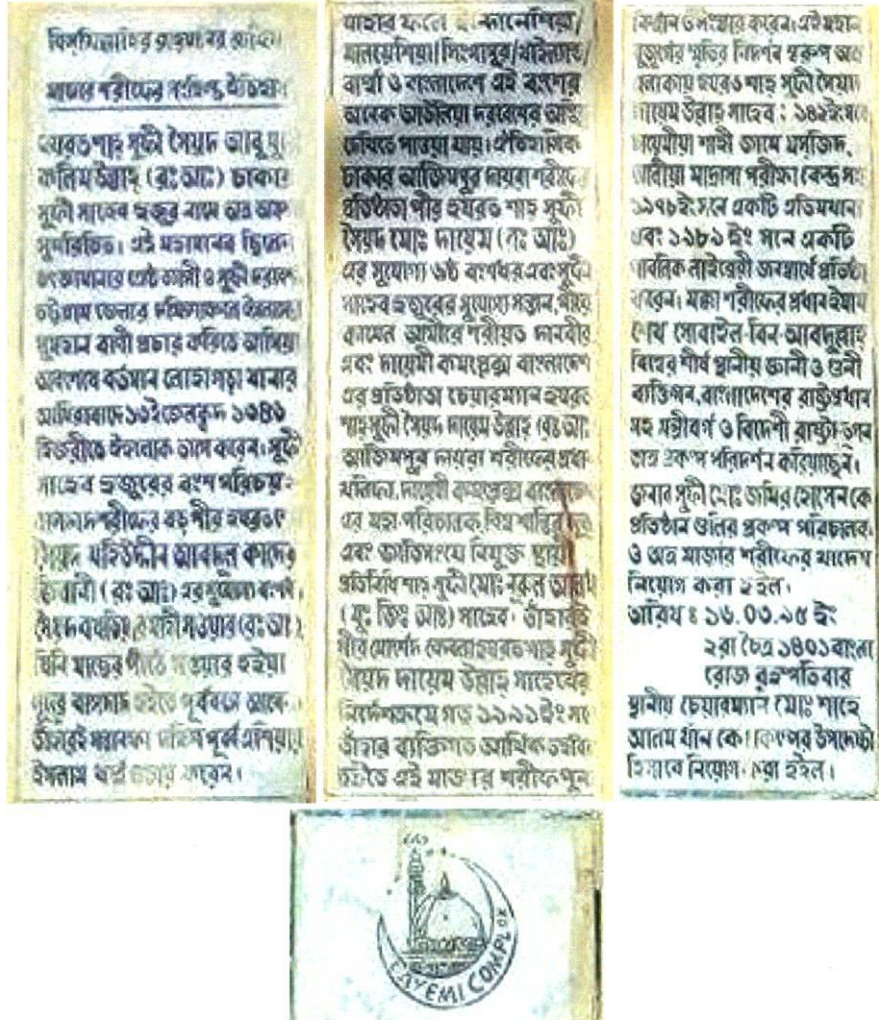 বিসমিল্লাহির রাহমানির রাহিম
মাজার শরীফের সংক্ষিপ্ত ইতিহাস
হযরত শাহ্ সুফী সৈয়দ আবু মুঃ
কলিম উল্লাহ্ (রঃ আঃ) ঢাকার
সুফী সাহেব হুজুর নামে অত্র
সুপরিচিত। এই মহামানব ছিলেন
শ্রেষ্ঠ জ্ঞানী ও সুফী দরবেশ
চট্টগ্রাম জেলার দক্ষিণাঞ্চলে ইসলামের
সুমহান বাণী প্রচার করিতে আসিয়া
অবশেষে বর্তমান লোহাগাড়া থানার
১১ই জেলক্বদ ১৩৪৬
হিজরীতে ইহলোক ত্যাগ করেন। সুফী
সাহেব হুজুরের বংশ পরিচয়ঃ
বাগদাদ শরীফের বড় পীর হযরত
সৈয়দ মহিউদ্দীন আবদুল কাদের
জিলানী (রঃ আঃ) এর সুযোগ্য বংশধর
সৈয়দ বখতিয়ার মাহী সওয়ার (রঃ আঃ)
যিনি মাছের পীঠে সওয়ার হইয়া
সুদূর বাগদাদ হইতে পূর্ববঙ্গে আসেন
তাঁহারই দক্ষিণ পূর্ব এশিয়ায়
ইসলাম ধর্ম প্রচার করেন।
যাহার ফলে ইন্দোনেশিয়া/
মালয়েশিয়া/সিংগাপুর/থাইল্যান্ড/
বার্মা ও বাংলাদেশে এই বংশের
অনেক আউলিয়া দরবেশের
দেখিতে পাওয়া যায়। ঐতিহাসিক
ঢাকার আজিমপুর দায়রা শরীফের
প্রতিষ্ঠাতা পীর হযরত শাহ্ সুফী
সৈয়দ মোঃ দায়েম (রঃ আঃ)
এর সুযোগ্য ৬ষ্ঠ বংশধর এবং সুফী
সাহেব হুজুরের সুযোগ্য সন্তান, পীরে
কামেল আমীরে শরীয়ত দানবীর
এবং দায়েমী কমপ্লেক্স বাংলাদেশ
এর প্রতিষ্ঠাতা চেয়ারম্যান হযরত
শাহ্ সুফী সৈয়দ দায়েম উল্লাহ্ (রঃ আঃ)
আজিমপুর দায়রা শরীফের প্রধান
খলিফা, দায়েমী কমপ্লেক্স বাংলাদেশ
এর মহা পরিচালক, বিশ্ব শান্তির দূত
এবং জাতিসংঘে নিযুক্ত স্থায়ী
প্রতিনিধি শাহ্ সুফী মোঃ নুরুল আলম
(মুঃ জিঃ আঃ) সাহেব। তাঁহারই
পীর মোর্শেদ কেবলা হযরত শাহ্ সুফী
সৈয়দ দায়েম উল্লাহ্ সাহেবের
নির্দেশক্রমে গত ১৯৯১ইং সনে
তাঁহার ব্যক্তিগত আর্থিক তহবিল
হইতে এই মাজার শরীফ পুনঃ
নির্মাণ ও সংস্কার করেন। এই মহান
বুজুর্গের স্মৃতির নিদর্শন স্বরূপ অত্র
এলাকায় হযরত শাহ্ সুফী সৈয়দ
দায়েম উল্লাহ্ সাহেব :
দায়েমীয়া শাহী জামে মসজিদ,
মাদ্রাসা পরীক্ষা কেন্দ্র
১৯৭৮ইং সনে একটি এতিমখানা
এবং ১৯৮১ ইং সনে একটি
পাবলিক লাইব্রেরী জনস্বার্থে প্রতিষ্ঠা
করেন। মক্কা শরীফের প্রধান ইমাম
শেখ সোবাইল-বিন-আবদুল্লাহ
বিশ্বের শীর্ষ স্থানীয় জ্ঞানী ও গুনী
ব্যক্তিগন, বাংলাদেশের রাষ্ট্রপ্রধান
সহ মন্ত্রীবর্গ ও বিদেশী
অত্র প্রকল্প পরিদর্শন করিয়াছেন।
জনাব সুফী মোঃ জমির হোসেন কে
প্রতিষ্ঠান গুলির প্রকল্প পরিচালক
ও অত্র মাজার শরীফের খাদেম
নিয়োগ করা হইল।
তারিখ : ১৬.০৩.৯৫ ইং
২রা চৈত্র ১৪০১ বাংলা
রোজ বৃহস্পতিবার
স্থানীয় চেয়ারম্যান মোঃ শাহে
আলম খাঁন কে প্রকল্পের উপদেষ্টা
হিসাবে নিয়োগ করা হইল।
DAYEMI COMPLEX